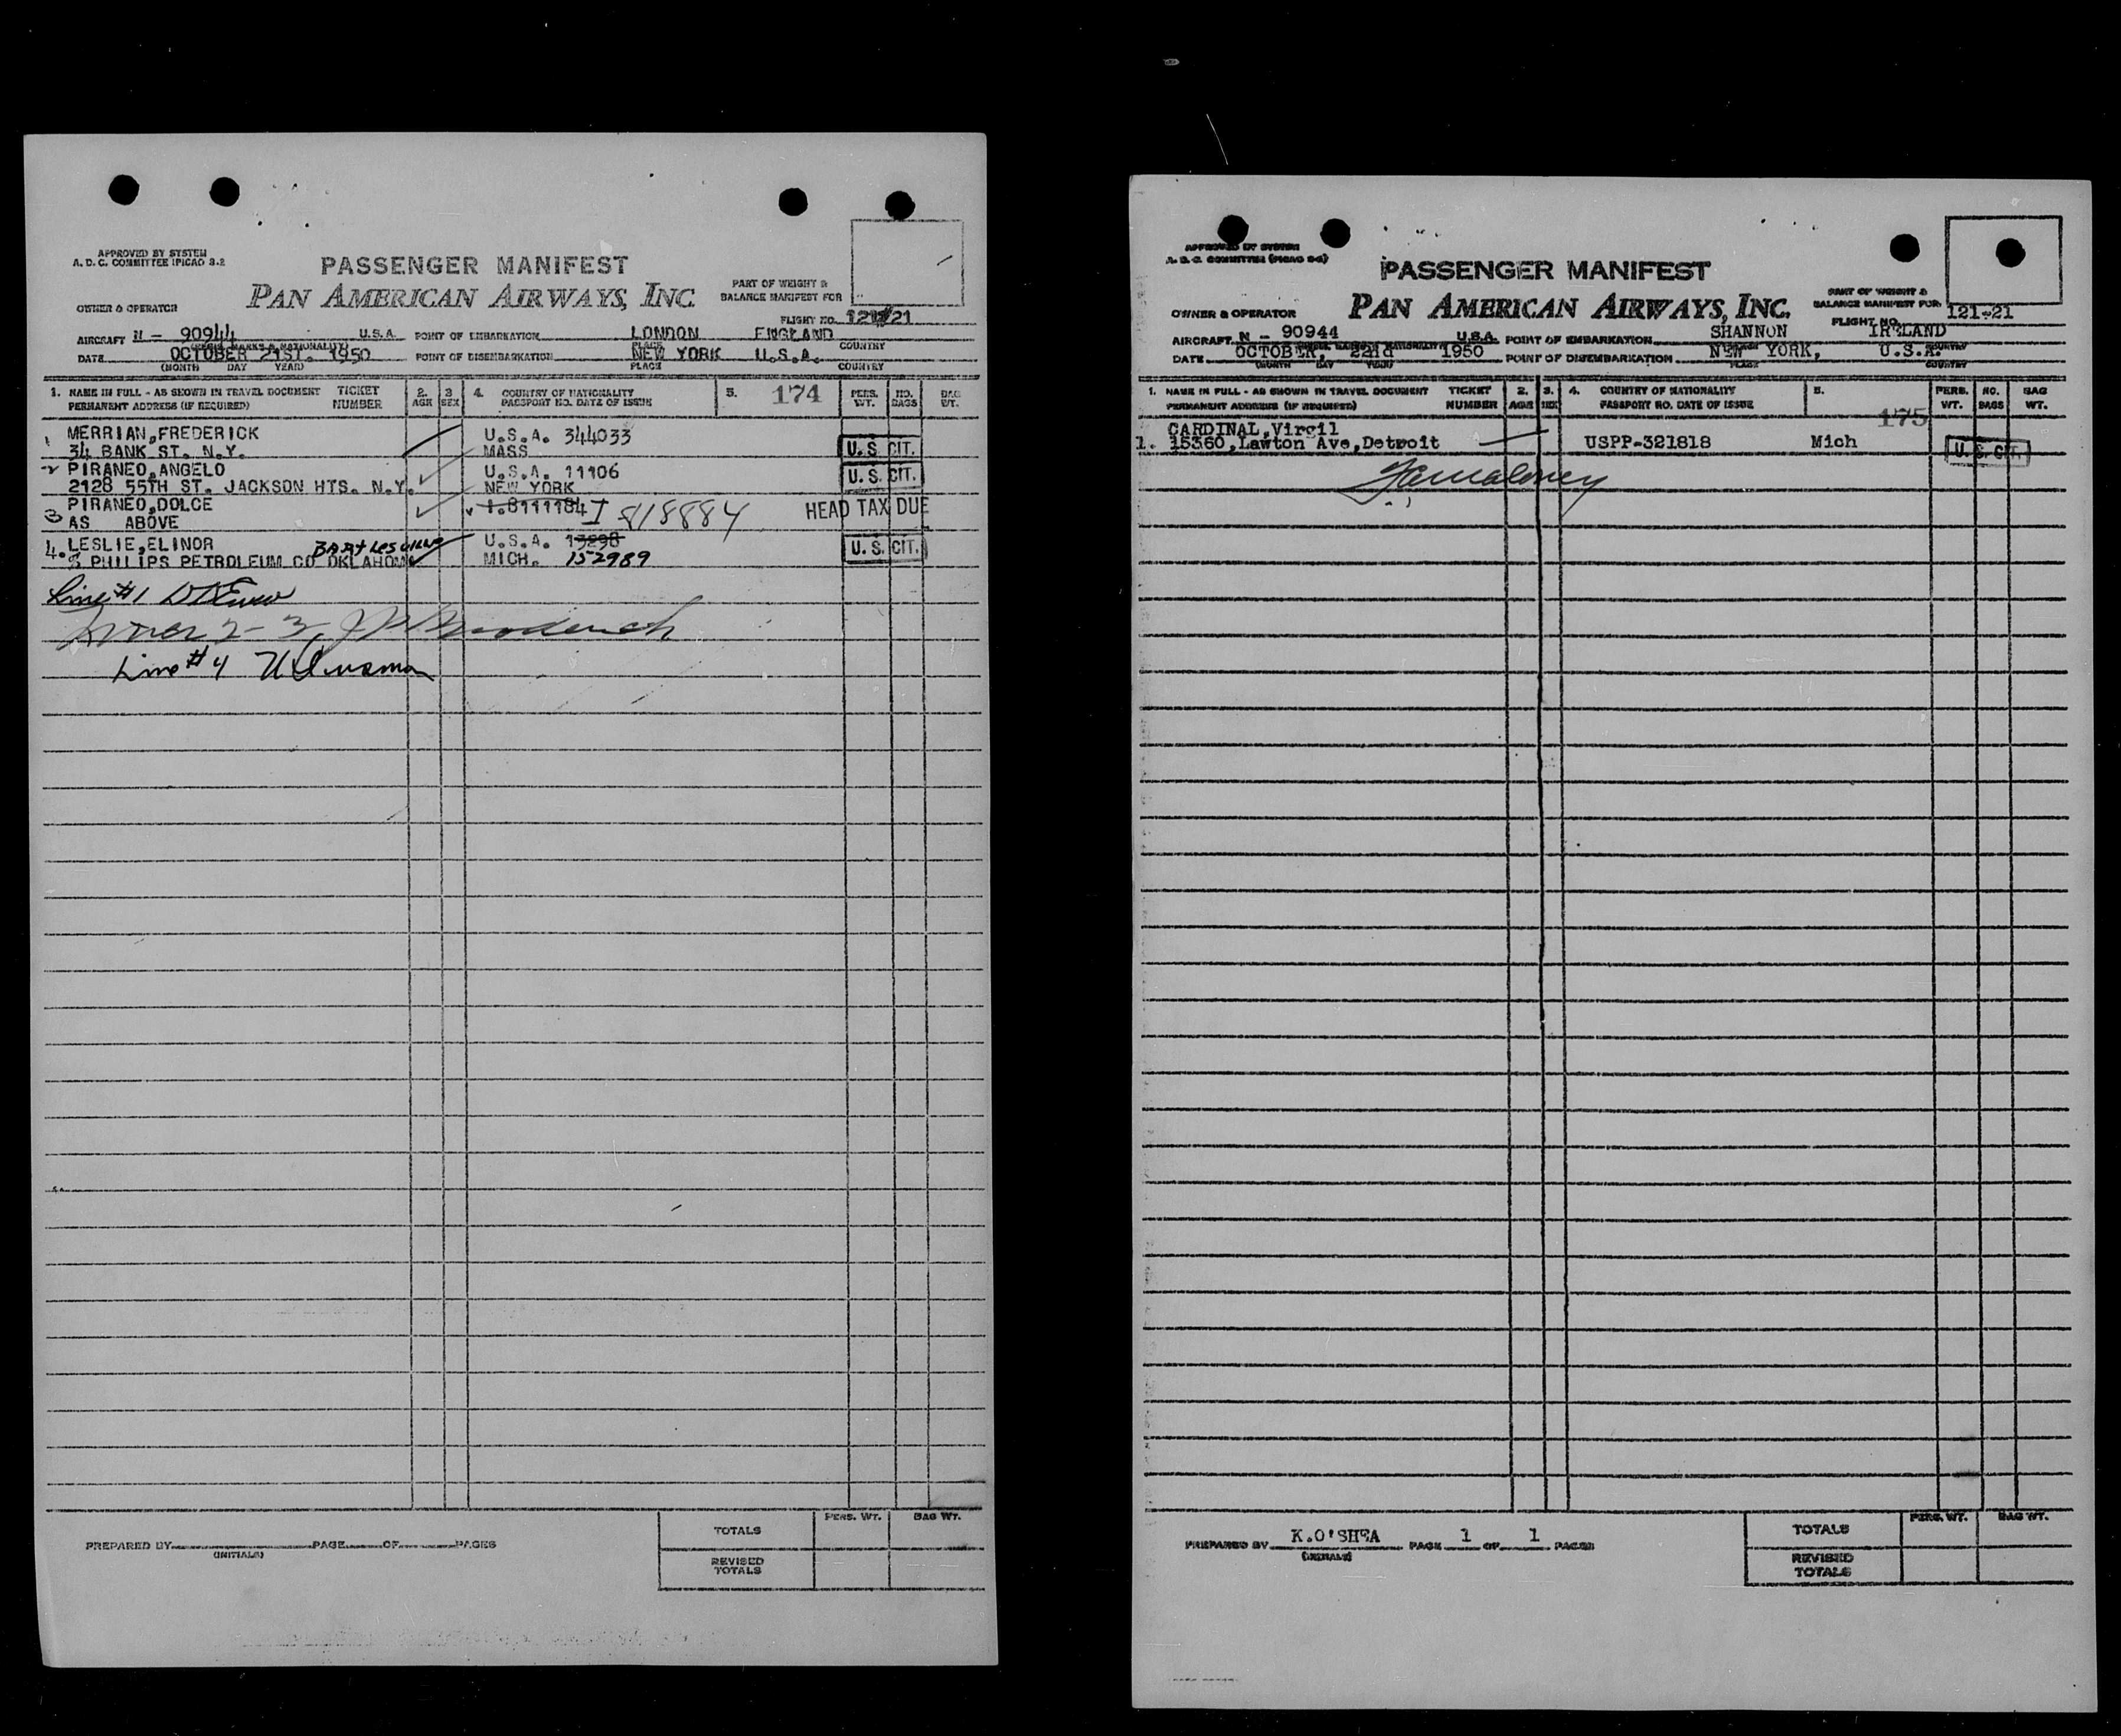 APPROVED BY SYSTEM
A. D. C. COMMITTEE (PICAO 3-2
PASSENGER MANIFEST
PAN AMERICAN AIRWAYS, INC.
PART OF WEIGHT &
BALANCE MANIFEST FOR
OWNER & OPERATOR
FLIGHT NO. 121/21
AIRCRAFT N - 90944 U.S.A. POINT OF EMBARKATION LONDON ENGLAND
PLACE COUNTRY
DATE OCTOBER 21ST. 1950 POINT OF DISEMBARKATION NEW YORK U.S.A.
(MONTH DAY YEAR) PLACE COUNTRY
1. NAME IN FULL - AS SHOWN IN TRAVEL DOCUMENT TICKET 2. 3 4. COUNTRY OF NATIONALITY 5. 174 PERS. NO. BAG
PERMANENT ADDRESS (IF REQUIRED) NUMBER AGE SEX PASSPORT NO. DATE OF ISSUE WT. BAGS WT.
1 MERRIAN, FREDERICK U.S.A. 344033
34 BANK ST. N.Y. MASS U.S. CIT.
2 PIRANEO, ANGELO U.S.A. 11106
2128 55TH ST. JACKSON HTS. N.Y. NEW YORK U.S. CIT.
3 PIRANEO, DOLCE I.8111184 I 818884 HEAD TAX DUE
AS ABOVE
4. LESLIE, ELINOR BARTLESVILLE U.S.A. 13298 U.S. CIT.
% PHILLIPS PETROLEUM CO OKLAHOMA MICH. 152989
Line #1
2-3,
Line #4
TOTALS PERS. WT. BAG WT.
PREPARED BY PAGE OF PAGES
(INITIALS)
REVISED
TOTALS
APPROVED BY SYSTEM
A. D. C. COMMITTEE (PICAO 3-2)
PASSENGER MANIFEST
PAN AMERICAN AIRWAYS, INC.
PART OF WEIGHT &
BALANCE MANIFEST FOR
OWNER & OPERATOR
FLIGHT NO. 121-21
AIRCRAFT N - 90944 U.S.A. POINT OF EMBARKATION SHANNON IRELAND
DATE OCTOBER, 22nd 1950 POINT OF DISEMBARKATION NEW YORK, U.S.A.
(MONTH DAY YEAR) PLACE COUNTRY
1. NAME IN FULL - AS SHOWN IN TRAVEL DOCUMENT TICKET 2. 3. 4. COUNTRY OF NATIONALITY 5. PERS. NO. BAG
PERMANENT ADDRESS (IF REQUIRED) NUMBER AGE SEX PASSPORT NO. DATE OF ISSUE WT. BAGS WT.
175
CARDINAL, Virgil
1. 15360, Lawton Ave, Detroit USPP-321818 Mich U.S. CIT.
TOTALS PERS. WT. BAG WT.
PREPARED BY K.O'SHEA PAGE 1 OF 1 PAGES
(INITIALS)
REVISED
TOTALS